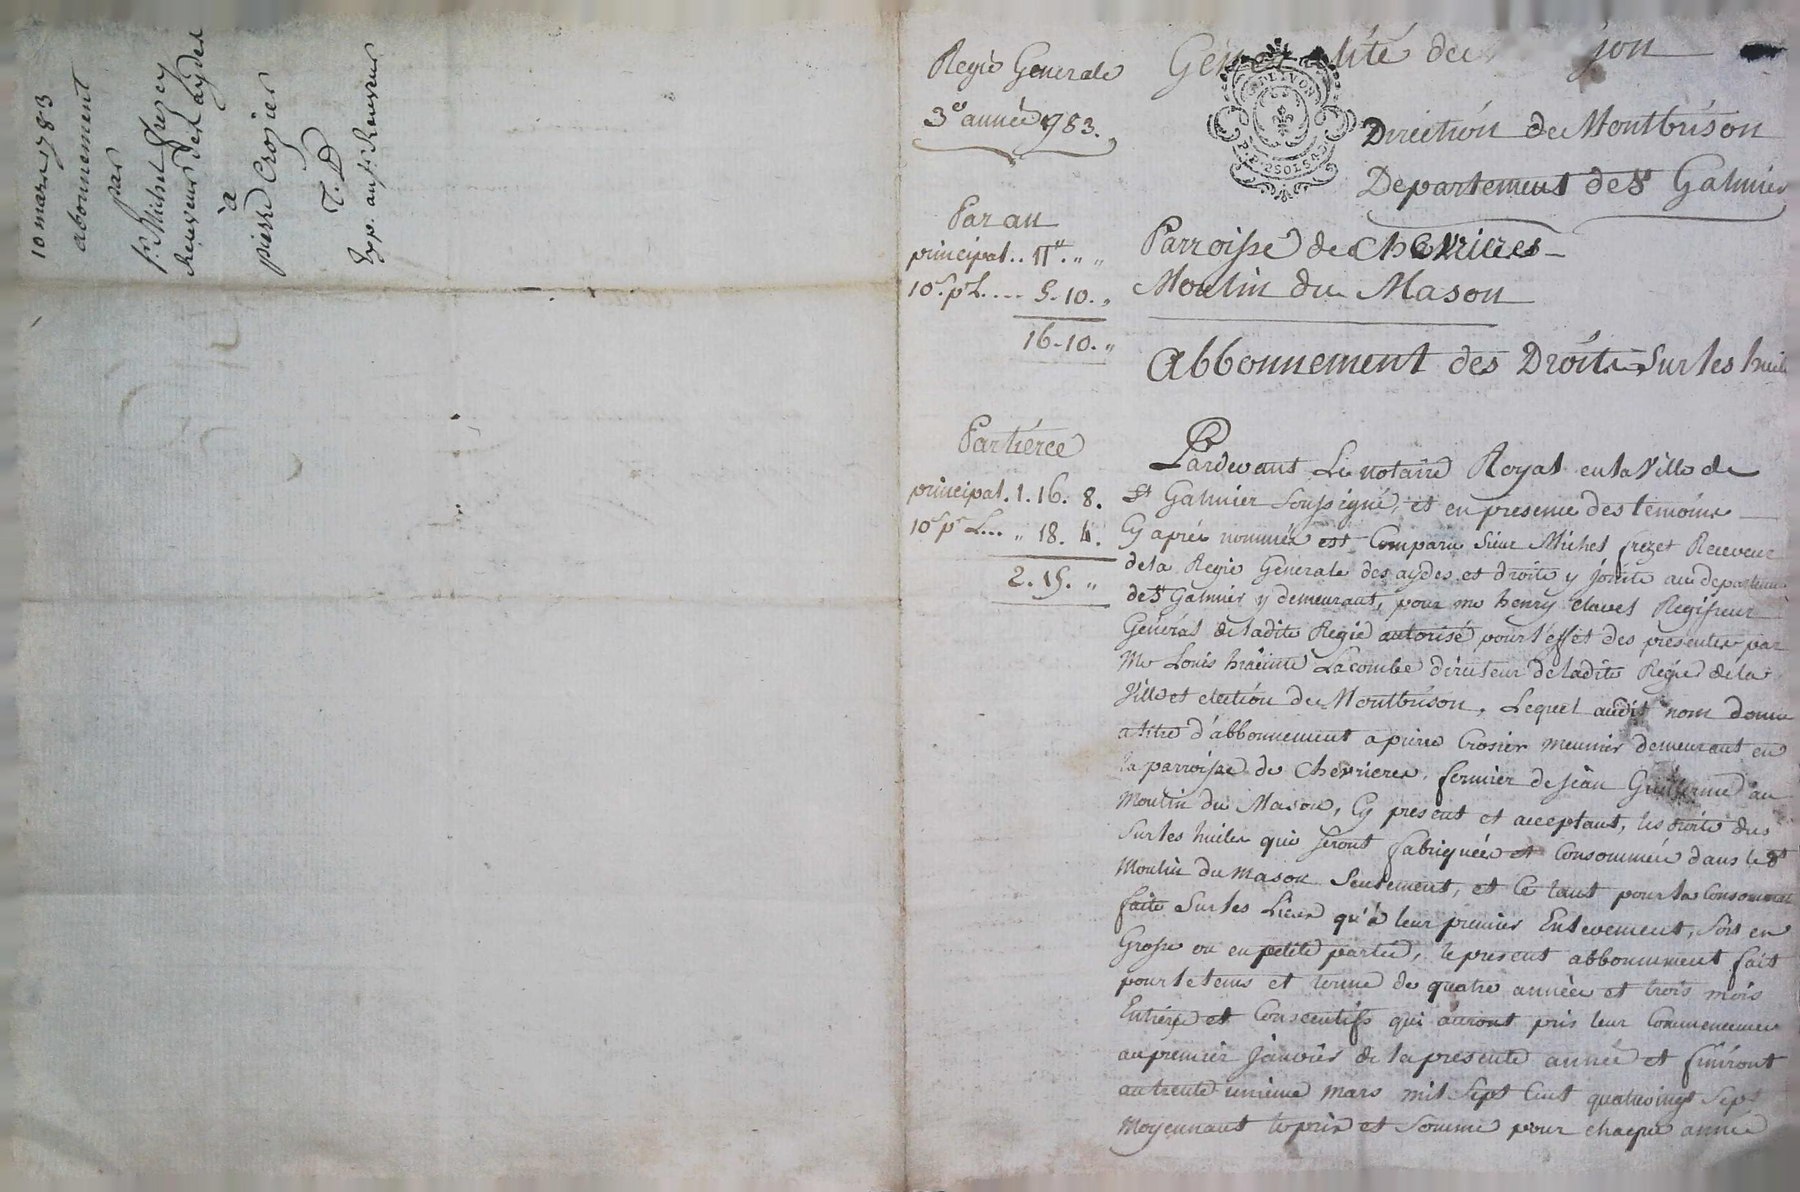 10 mars 1783
abonnement
par
Sr. Michel frezet
Receveur des aydes
à
pierre Crozier
T. D
Exp. au Sr. Receveur
Regie Generale
3e année 1783.
Par an
principal.. 11tt. „ „
10 s. pr L.... 5. 10. „
16. 10. „
Par tierce
principal. 1. 16. 8.
10 s. pr L... „ 18. 4.
2. 15. „
Generalité de
G. DE LYON
P. P. 2 SOLS 4 D.
Direction de Montbrison
Departement de St Galmier
Parroisse de Chevrieres
Moulin du Mason
Abbonnement des Droits sur les huiles
Pardevant Le notaire Royal en la Ville de
St Galmier soussigné, et en presence des temoins
Cy après nommés est Comparu Sieur Michel frezet Receveur
de la Regie Generale des aydes et droits y joints au departement
de St Galmier y demeurant, pour me henry clavel Regisseur
Général de ladite Regie autorisé pour l'effet des presentes par
Me Louis hiacinte Lacombe directeur de ladite Regie de la
Ville et election de Montbrison, Lequel audit nom donne
a titre d'abbonnement a pierre Crosier meunier demeurant en
la parroisse de Chevrieres, fermier de jean Guillerme au
Moulin du Mason, Cy present et acceptant, les droits dus
Sur les huiles qui seront fabriquées et Consommées dans le dt
Moulin du Mason Seulement, et Ce tant pour la Consommation
faite Sur les Lieux qu'à leur premier Enlevement, soit en
Grosse ou en petite partie, le present abbonnement fait
pour le tems et terme de quatre années et trois mois
Entiers et Consecutifs qui auront pris leur Commencement
au premier janvier de la presente année et finiront
au trente unieme Mars mil Sept Cent quatrevingt Sept
Moyennant le prix et Somme pour chaque année